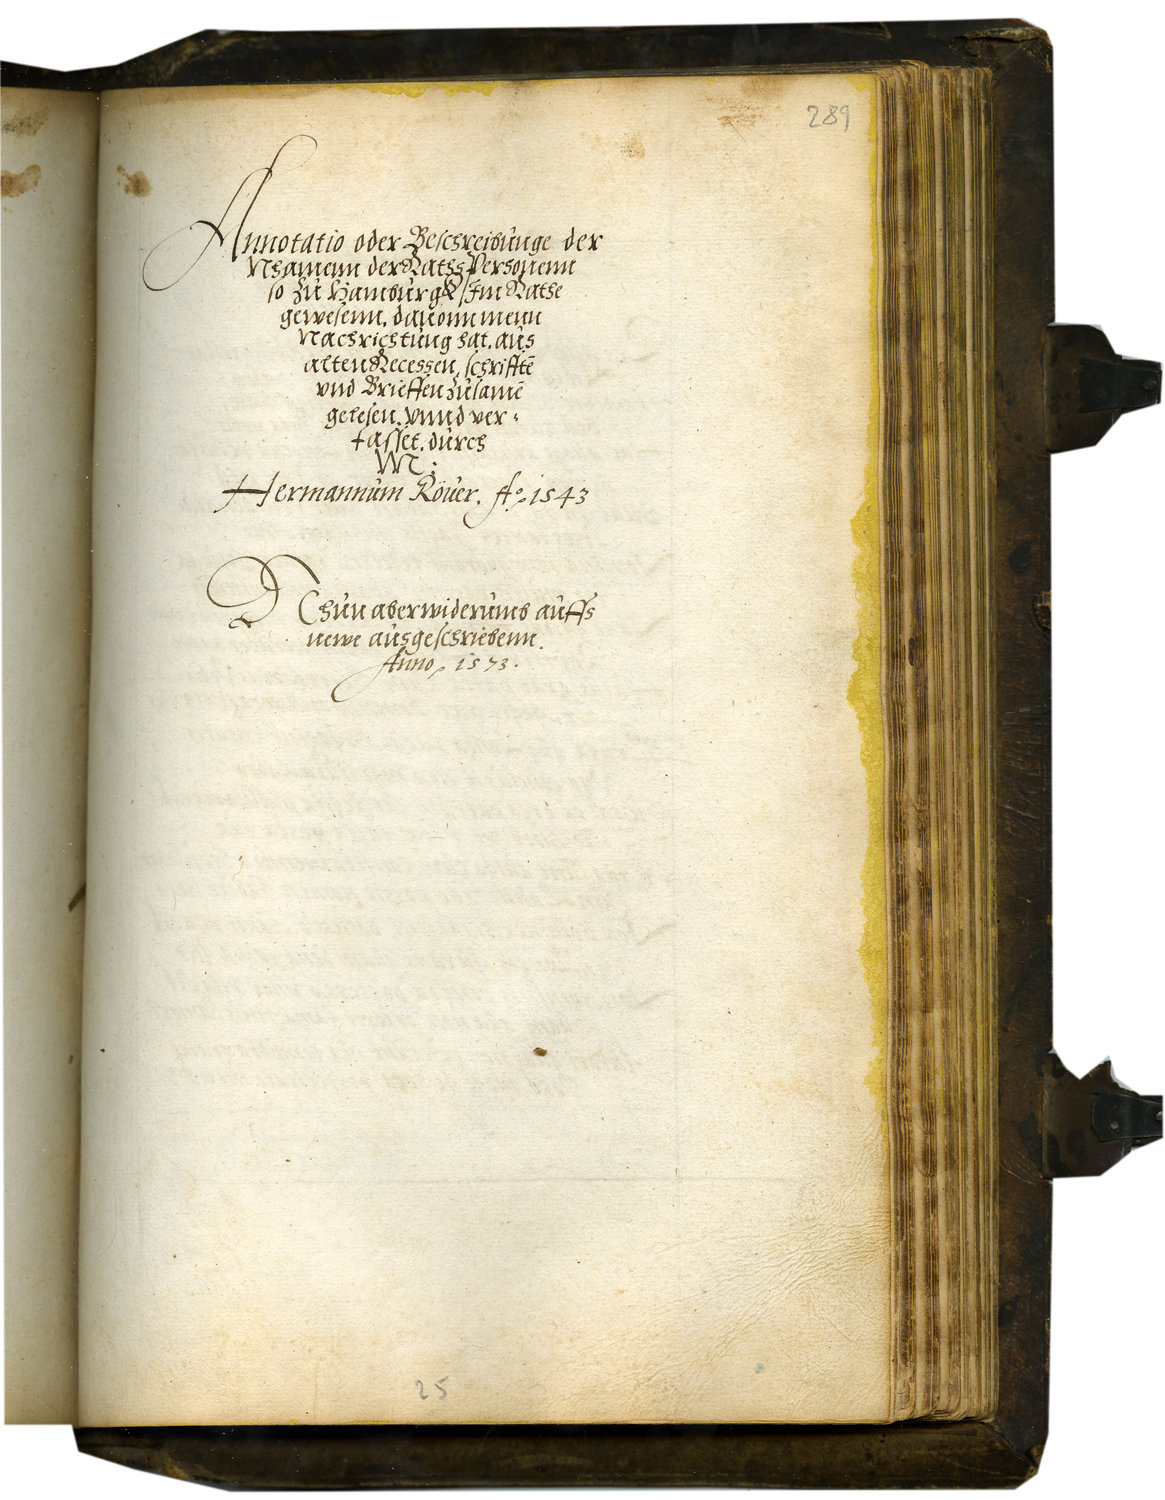 289
Annotatio oder Beschreibunge der
Nhamenn der Raths Personenn
so zu Hamburgk Im Rathe
gewesenn, dauonn menn
Nachrichtung hat, aus
alten Recessen, schrifftē
vnd Brieffen zusamē
gelesen, vnnd ver-
fasset, durch
M:
Hermannum Röuer. Aº. 1543
Thun aber widerumb auffs
newe ausgeschriebenn.
Anno, 1573.
25